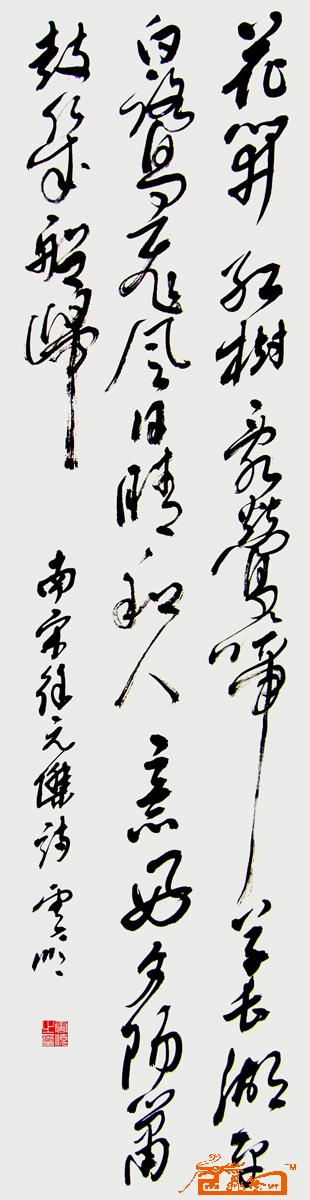 花開紅樹乱鶯啼草長湖平
白鷺飛風日晴和人意好夕陽簫
鼓幾船歸
南宋徐元傑詩